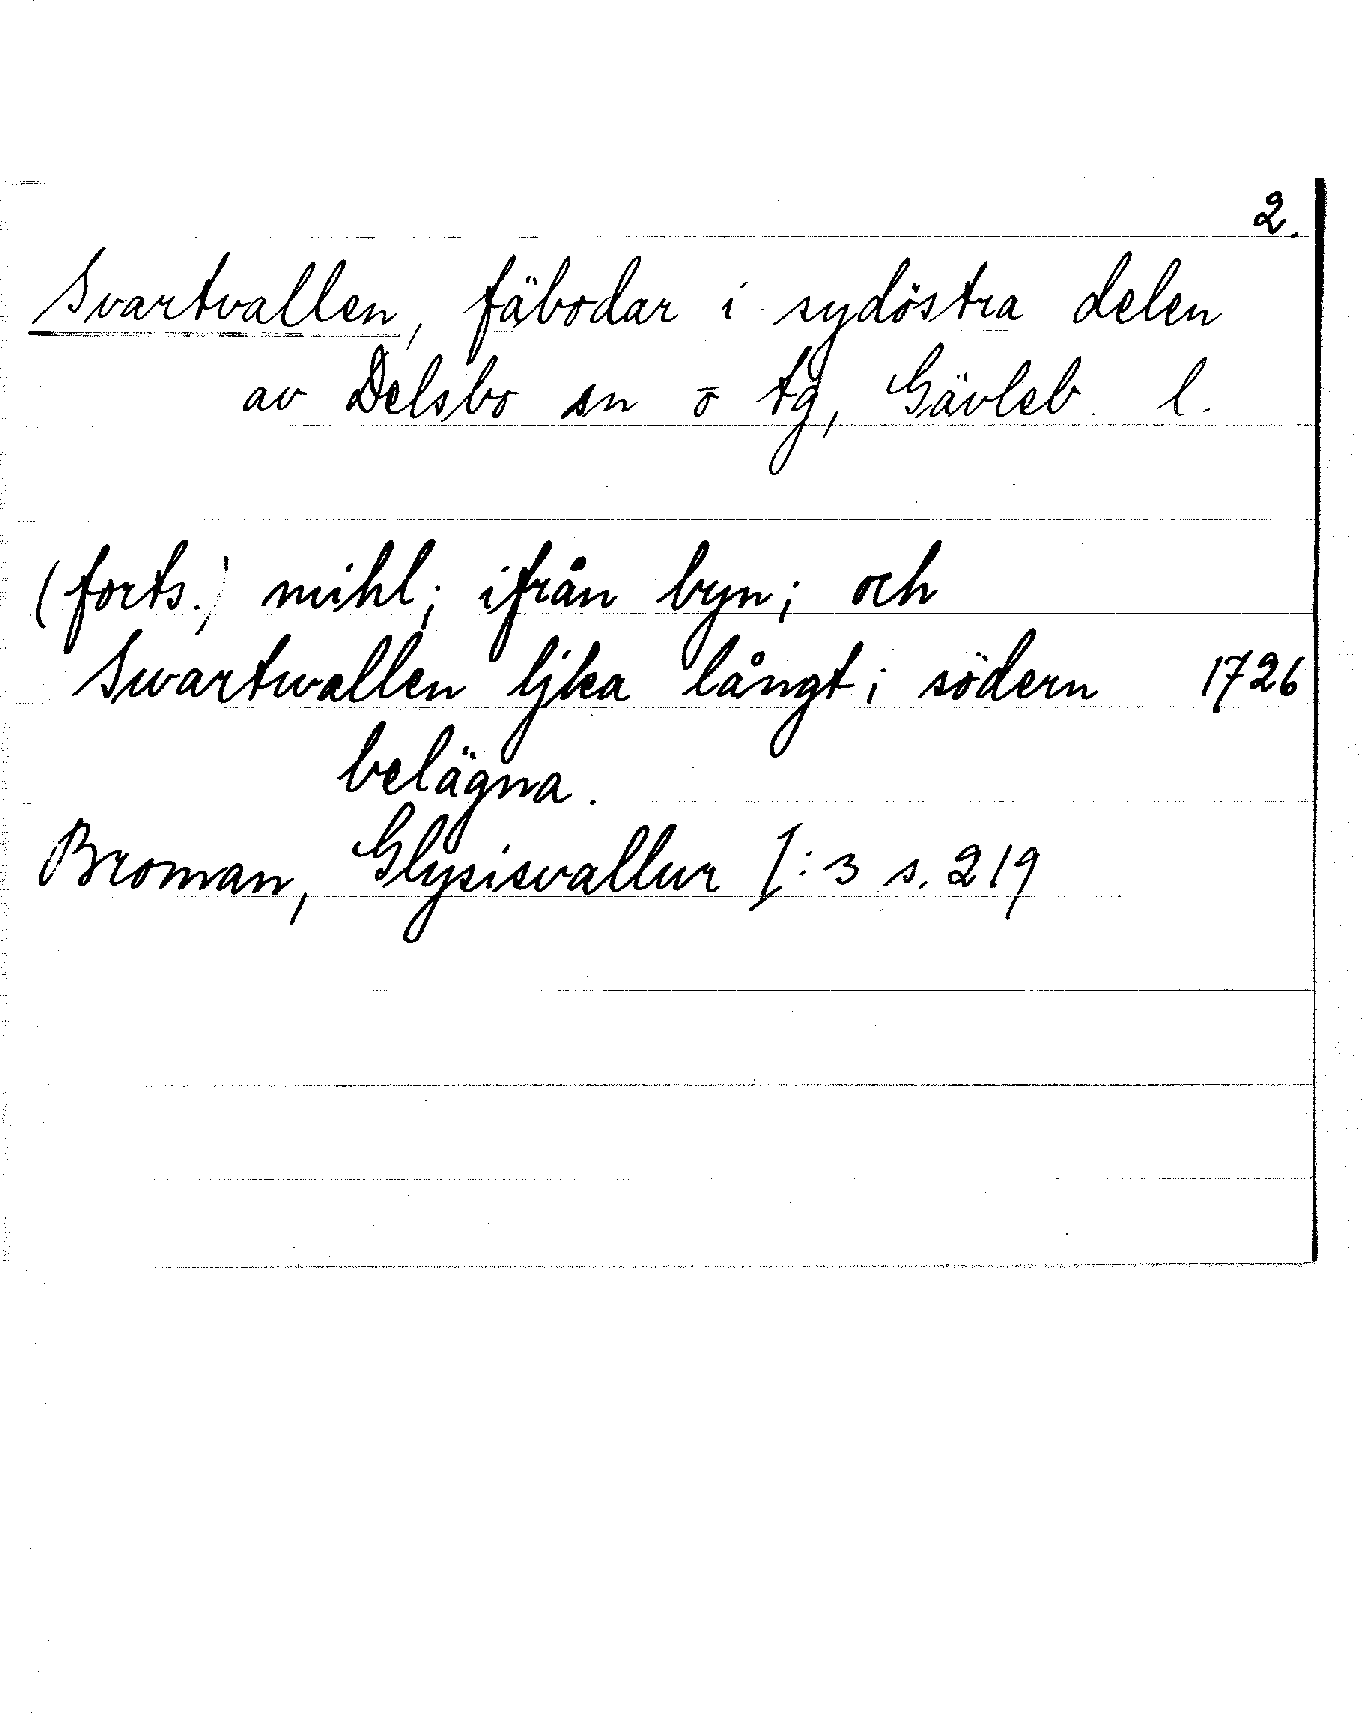 2.
Svartvallen, fäbodar i sydöstra delen
av Delsbo sn o tg, Gävleb. l.
(forts.) mihl; ifrån byn; och
Swartwallen ljka långt i södern 1726
belägna.
Broman, Glysisvallur I:3 s. 219